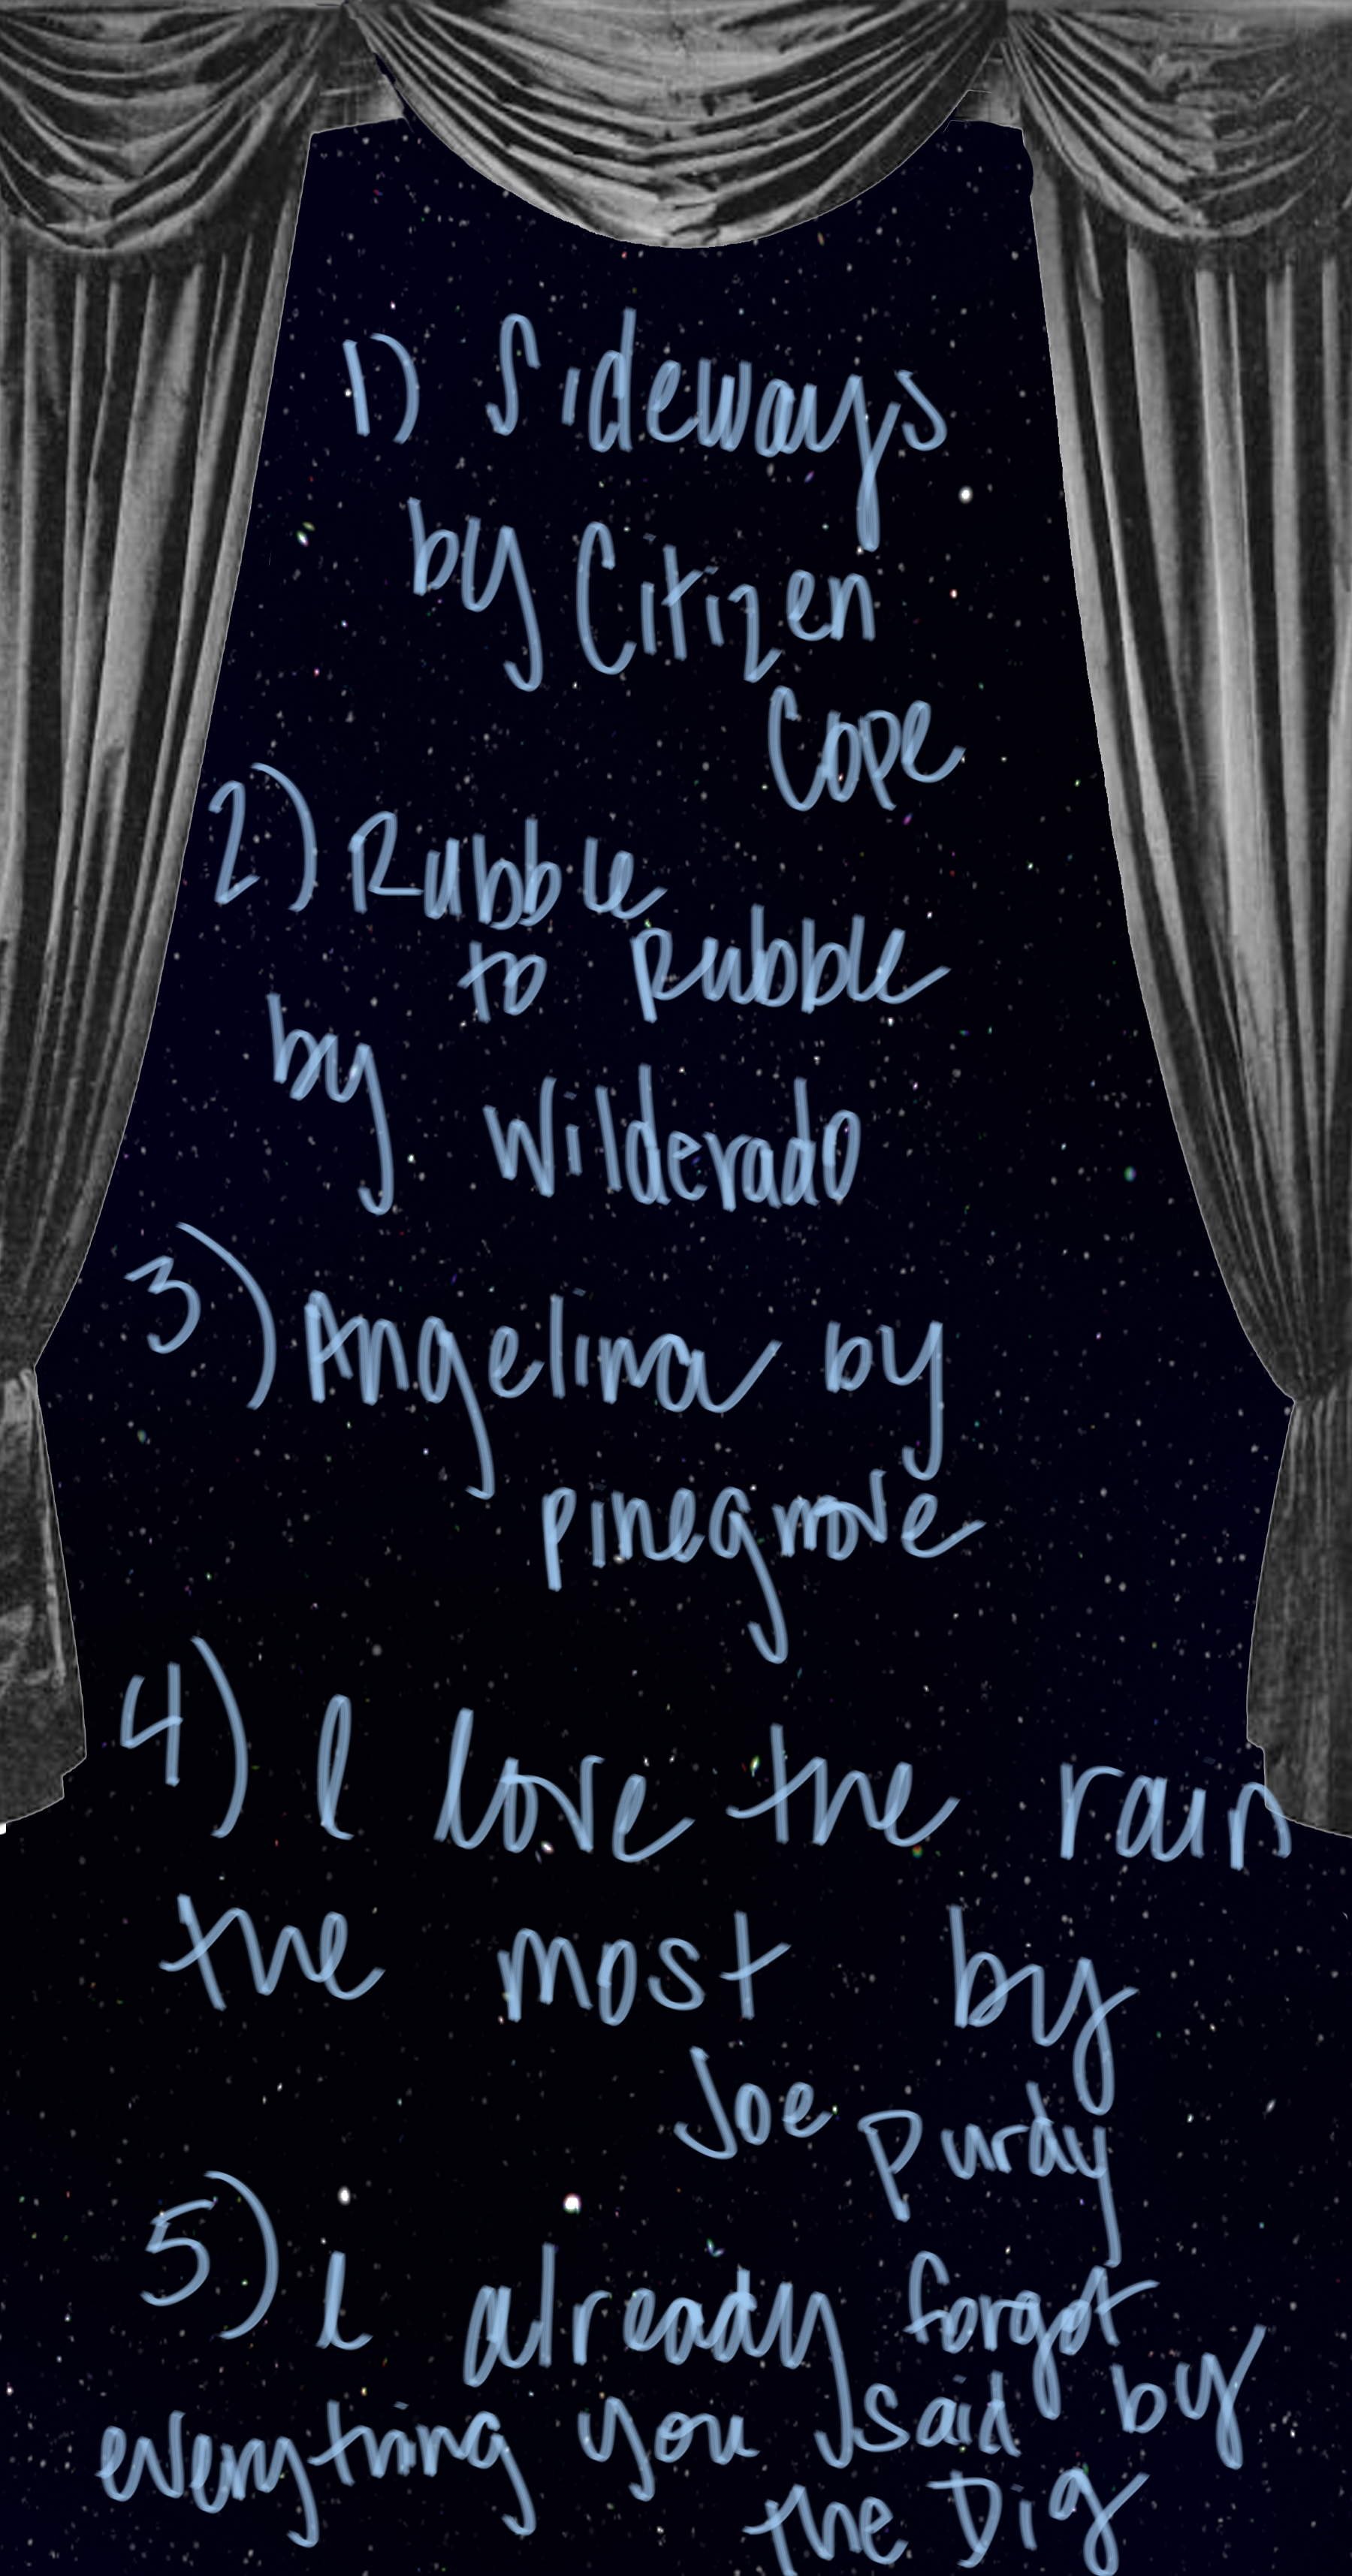 1) Sideways
by Citizen
Cope
2) Rubble
to Rubble
by Wilderado
3) Angelina by
pinegrove
4) I love the rain
the most by
Joe Purdy
5) I already forgot
everything you said by
the Dig